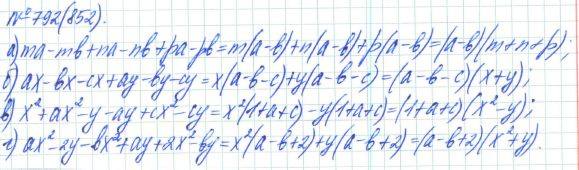 №792(852).
а) ma-mв+na-nв+pa-pв=m(a-в)+n(a-в)+p(a-в)=(a-в)(m+n+p);
б) ax-вx-cx+ay-вy-cy=x(a-в-c)+y(a-в-c)=(a-в-c)(x+y);
в) x²+ax²-y-ay+cx²-cy=x²(1+a+c)-y(1+a+c)=(1+a+c)(x²-y);
г) ax²+2y-вx²+ay+2x²-вy=x²(a-в+2)+y(a-в+2)=(a-в+2)(x²+y).